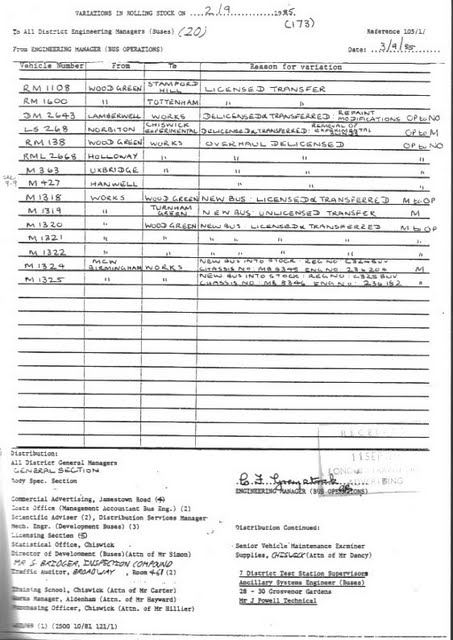 VARIATIONS IN ROLLING STOCK ON 2/9 1985.
(173)
To All District Engineering Managers (Buses) (20) Reference 103/1/
From ENGINEERING MANAGER (BUS OPERATIONS) Date: 3/9/85
Vehicle Number From To Reason for variation
RM 1108 WOOD GREEN STAMFORD HILL LICENSED TRANSFER
RM 1600 " TOTTENHAM " "
DM 2643 CAMBERWELL WORKS DELICENSED & TRANSFERRED: REPAINT MODIFICATIONS OP to NO
LS 268 NORBITON CHISWICK EXPERIMENTAL DELICENSED & TRANSFERRED: REMOVAL OF EXPERIMENTAL OP to M
RM 138 WOOD GREEN WORKS OVERHAUL DELICENSED OP to NO
RML 2668 HOLLOWAY " " " "
M 363 UXBRIDGE " " " "
M 427 HANWELL " " " "
M 1318 WORKS WOOD GREEN NEW BUS: LICENSED & TRANSFERRED M to OP
M 1319 " TURNHAM GREEN NEW BUS: UNLICENSED TRANSFER M
M 1320 " WOOD GREEN NEW BUS: LICENSED & TRANSFERRED M to OP
M 1321 " " " " " "
M 1322 " " " " " "
M 1324 MCW BIRMINGHAM WORKS NEW BUS INTO STOCK: REG NO: C324 BUV CHASSIS NO: MB 8345 ENG NO: M
M 1325 " " NEW BUS INTO STOCK: REG NO: C325 BUV CHASSIS NO: MB 8346 ENG NO: 236182 "
RECEIVED
11 SEP
LONDON
ADVERTISING
Distribution:
All District General Managers
GENERAL SECTION
Body Spec. Section
ENGINEERING MANAGER (BUS OPERATIONS)
Commercial Advertising, Jamestown Road (4)
Costs Office (Management Accountant Bus Eng.) (2)
Scientific Adviser (2), Distribution Services Manager
Mech. Engr. (Development Buses) (3) Distribution Continued:
Licensing Section (5)
Statistical Office, Chiswick Senior Vehicle Maintenance Examiner
Director of Development (Buses)(Attn Mr Simon) Supplies, CHISWICK (Attn of Mr Dancy)
MR S. BRIDGER, INSPECTION COMPOUND
Traffic Auditor, BROADWAY, Room (2) 7 District Test Station Supervisors
Ancillary Systems Engineer (Buses)
Training School, Chiswick (Attn of Mr Carter) 28 - 30 Grosvenor Gardens
Works Manager, Aldenham (Attn. of Mr Hayward) Mr J Powell Technical
Purchasing Officer, Chiswick (Attn of Mr Hillier)
(1) (2500 10/81 121/1)